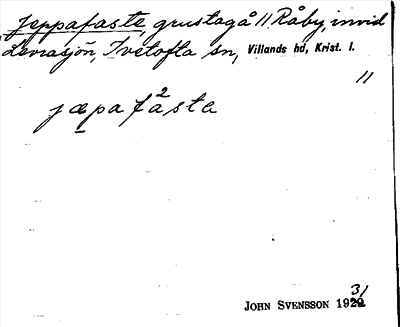 Jeppafaste, grustag å 11 Råby, invid
Levrasjön, Ivetofta sn, Villands hd, Krist. l.
11
jæpafa²sta
JOHN SVENSSON 1931